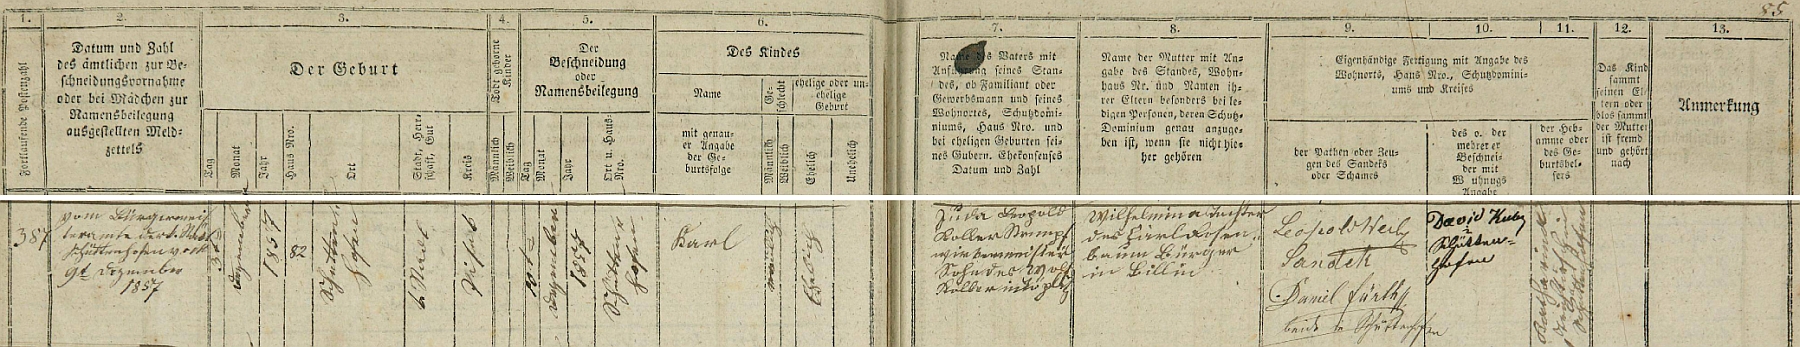 85
1.
2.
3.
4.
5.
6.
7.
8.
9.
10.
11.
12.
13.
Fortlaufende Postenzahl
Datum und Zahl
des ämtlichen zur Be-
schneidungsvornahme
oder bei Mädchen zur
Namensbeilegung
ausgestellten Meld-
zettels
Der Geburt
Tag
Monat
Jahr
Haus Nro.
Ort
Stadt, Herr-
schaft, Gut
Kreis
Todt geborne
Kinder
Männlich
Weiblich
Der
Beschneidung
oder
Namensbeilegung
Tag
Monat
Jahr
Ort u. Haus-
Nro.
Des Kindes
Name
mit genau-
er Angabe
der Ge-
burtsfolge
Ge-
schlecht
Männlich
Weiblich
eheliche oder un-
ehelige
Geburt
Ehelich
Unehelich
Name des Vaters mit
Anführung seines Stan-
des, ob Familiant oder
Gewerbsmann und seines
Wohnortes, Schutzdomi-
niums, Haus Nro. und
bei eheligen Geburten sei-
nes Gubern. Ehekonsenses
Datum und Zahl
Name der Mutter mit An-
gabe des Standes, Wohn-
haus Nr. und Namen ih-
rer Eltern besonders bei le-
digen Personen, deren Schutz-
Dominium genau anzuge-
ben ist, wenn sie nicht hie-
her gehören
Eigenhändige Fertigung mit Angabe des
Wohnorts, Haus Nro., Schutzdomini-
ums und Kreises
der Pathen oder Zeu-
gen des Sandeks
oder Schames
des o. der
mehrer er
Beschnei-
der mit
W uhnugs
Angabe
der Heb-
amme oder
des Ge-
burtshel-
fers
Das Kind
sammt
seinen El-
tern oder
blos sammt
der Mutter
ist fremd
und gehört
nach
Anmerkung
387
vom Bürgermeis
teramte der k. Stadt
Schüttenhofen vom
9t Dezember
1857
3t
Dezember
1857
82
Schütten
hofen
k. Stadt
Pisek
10t
Dezember
1857
Schütten
hofen
Karl
männlich
Ehelig
Juda Leopold
Koller Strumpf
wirkermeister
Sohn des Wolf
Koller
Wilhelmina Tochter
des Carl Rosen
baum Bürger
in Billin
Leopold Weil
Sandek
Daniel Fürth
beide in Schüttenhofen
David Kuby
in
Schütten-
hofen
Katharina